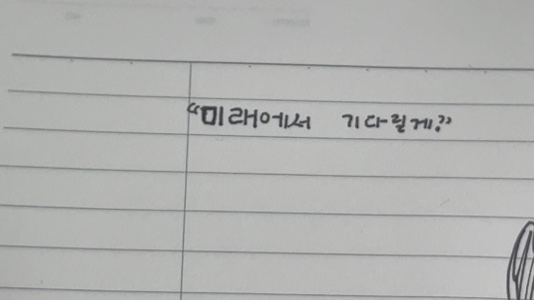 "미래에서 기다릴게."